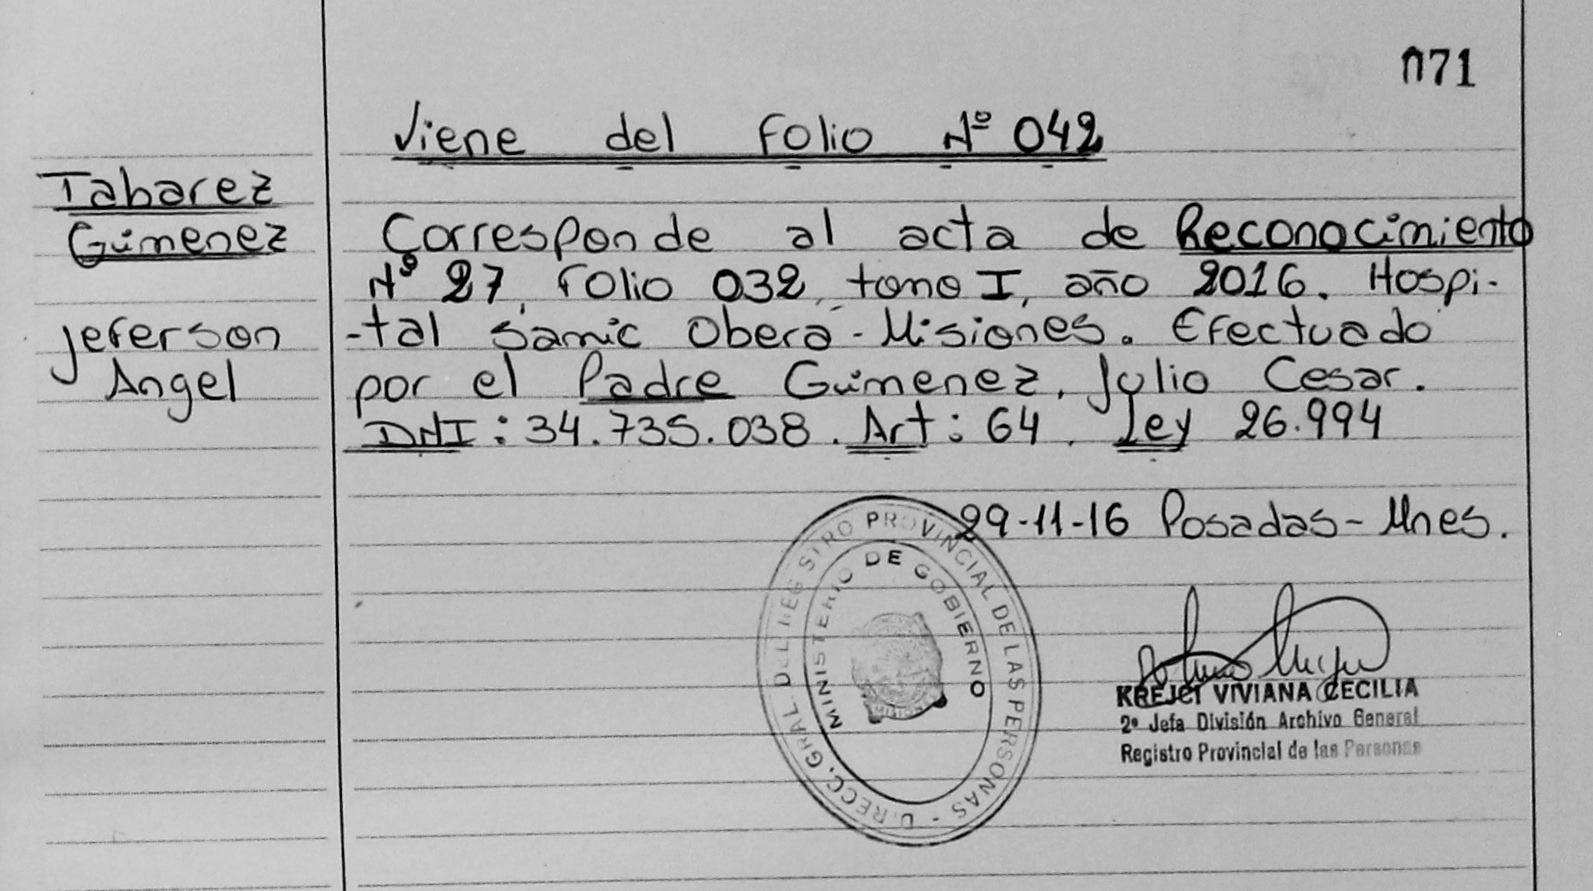 071
Viene del Folio Nº 042
Tabarez
Gimenez
Jeferson
Angel
Corresponde al acta de Reconocimiento
Nº 27, Folio 032, tomo I, año 2016. Hospi-
-tal Samic Oberá - Misiones. Efectuado
por el Padre Gimenez, Julio Cesar.
DNI: 34.735.038. Art: 64. Ley 26.994
29-11-16 Posadas - Mnes.
DIRECC. GRAL. DEL REGISTRO PROVINCIAL DE LAS PERSONAS -
MINISTERIO DE GOBIERNO
MISIONES
KREJCI VIVIANA CECILIA
2ª Jefa División Archivo General
Registro Provincial de las Personas